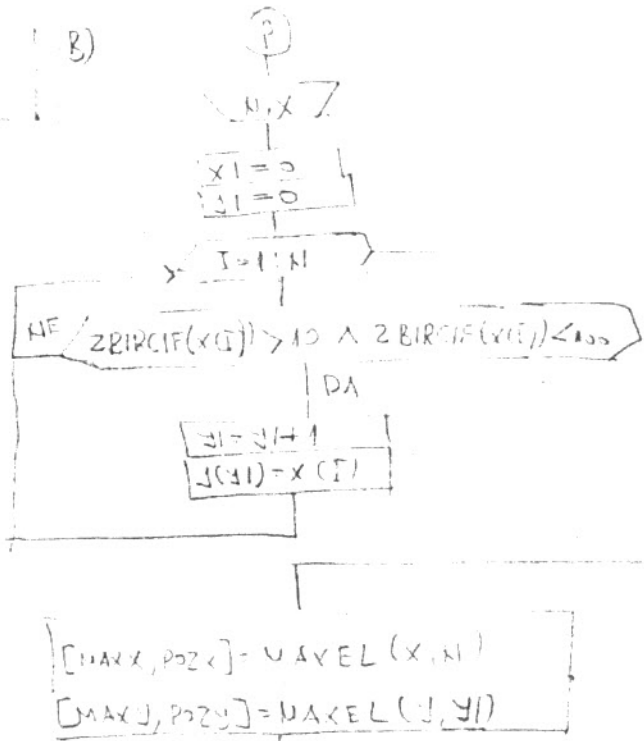 B)
P
N, X
XI=0
YI=0
I=1:N
NE
ZBIRCIF(X(I))>10 ∧ ZBIRCIF(X(I))<100
DA
YI=YI+1
Y(YI)=X(I)
[MAXX, POZX]=MAXEL(X,N)
[MAXY, POZY]=MAXEL(Y,YI)